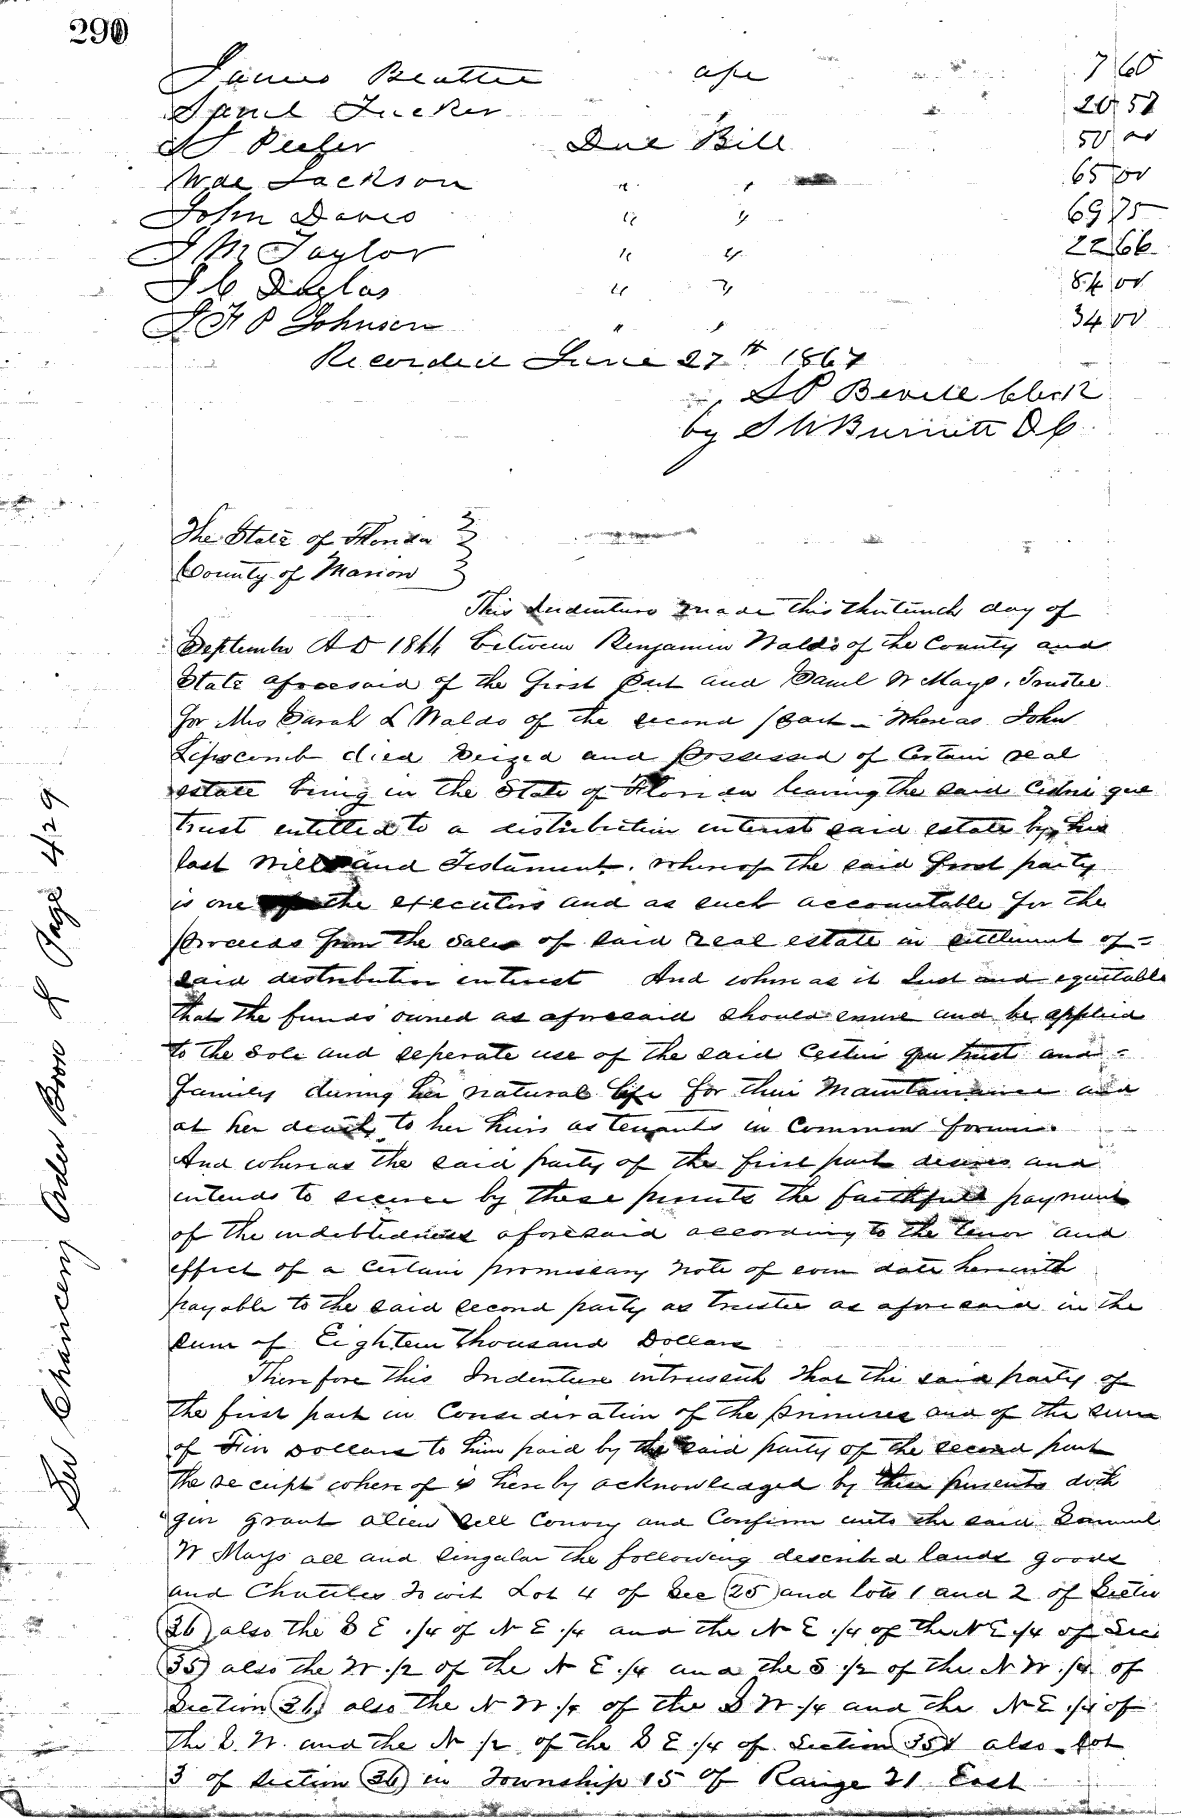 290
James Beattie a/c 7 60
Saml Tucker " 20 58
S S Peeler Due Bill 50 00
Wde Jackson " " 65 00
John Davis " " 69 75
J M Taylor " " 22 66
J C Duglas " " 84 00
J F P Johnson " " 34 00
Recorded June 27th 1867
S P Bevill Clerk
by S W Burnett D C
The State of Florida
County of Marion
This Indenture made this thirteenth day of
September A D 1866 between Benjamin Waldo of the County and
State aforesaid of the first part and Saml W Mays, Trustee
for Mrs Sarah L Waldo of the second part - Whereas John
Lipscomb died seized and possessed of Certain real
estate being in the State of Florida leaving the said Cestui que
trust entitled to a distribution interest said estate by his
last Will and Testament. whereof the said first party
is one of the executors and as such accountable for the
proceeds from the Sales of said real estate in settlement of =
said distribution interest And whereas it Just and equitable
that the funds owned as aforesaid should enure and be applied
to the Sole and seperate use of the said Cestui que trust and =
family during her natural life for their Maintainance and
at her death to her heirs as tenants in Common forever.
And whereas the said party of the first part desires and
intends to secure by these presents the faithfull payment
of the indebtedness aforesaid according to the tenor and
effect of a Certain promissary note of even date herewith
payable to the said second party as trustee as aforesaid in the
sum of Eighteen thousand Dollars
Therefore this Indenture witnesseth that the said party of
the first part in Consideration of the premises and of the sum
of Five Dollars to him paid by the said party of the second part
the receipt whereof is hereby acknowledged by these presents doth
give grant alien sell Convey and Confirm unto the said Samuel
W Mays all and singular the following described lands goods
and Chattles to wit Lot 4 of Sec 25 and lots 1 and 2 of Section
36 also the S E 1/4 of N E 1/4 and the N E 1/4 of the N E 1/4 of Sec
35 also the W 1/2 of the N E 1/4 and the S 1/2 of the N W 1/4 of
Section 36 also the N W 1/4 of the S W 1/4 and the N E 1/4 of
the S. W. and the N 1/2 of the S E 1/4 of Section 35 also Lot
3 of Section 36 in Township 15 of Range 21 East
See Chancery Order Book L Page 429